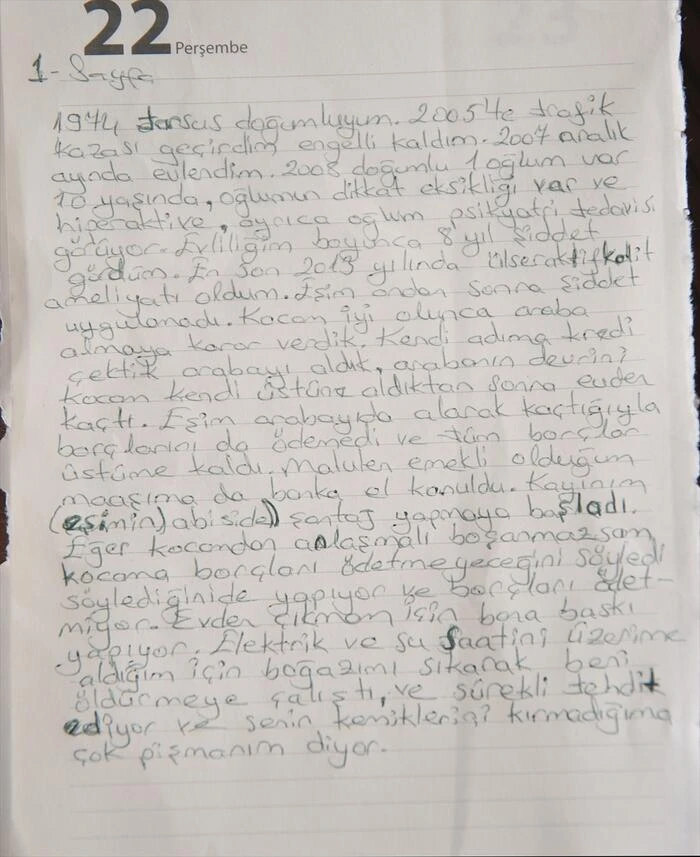 22 Perşembe
1- Sayfa
1974 tarsus doğumluyum. 2005'te trafik
kazası geçirdim engelli kaldım. 2007 aralık
ayında evlendim. 2008 doğumlu 1 oğlum var
10 yaşında, oğlumun dikkat eksikliği var ve
hiperaktive, ayrıca oğlum psikyatri tedavisi
görüyor. Evliliğim boyunca 8 yıl şiddet
gördüm. En son 2013 yılında ülseraktifkolit
ameliyatı oldum. Eşim ondan sonra şiddet
uygulamadı. Kocam iyi olunca araba
almaya karar verdik. Kendi adıma kredi
çektik arabayı aldık, arabanın devrini
kocam kendi üstüne aldıktan sonra evden
kaçtı. Eşim arabayıda alarak kaçtığıyla
borçlarını da ödemedi ve tüm borçlar
üstüme kaldı. Malulen emekli olduğum
maaşıma da banka el konuldu. Kayınım
(eşimin) abiside) şantaj yapmaya başladı.
Eğer kocandan anlaşmalı boşanmazsam
kocama borçları ödetmeyeceğini söyledi
söylediğinide yapıyor ve borçları ödet-
miyor. Evden çıkmam için bana baskı
yapıyor. Elektrik ve su saatini üzerime
aldığım için boğazımı sıkarak beni
öldürmeye çalıştı, ve sürekli tehdit
ediyor ve senin kemiklerini kırmadığıma
çok pişmanım diyor.